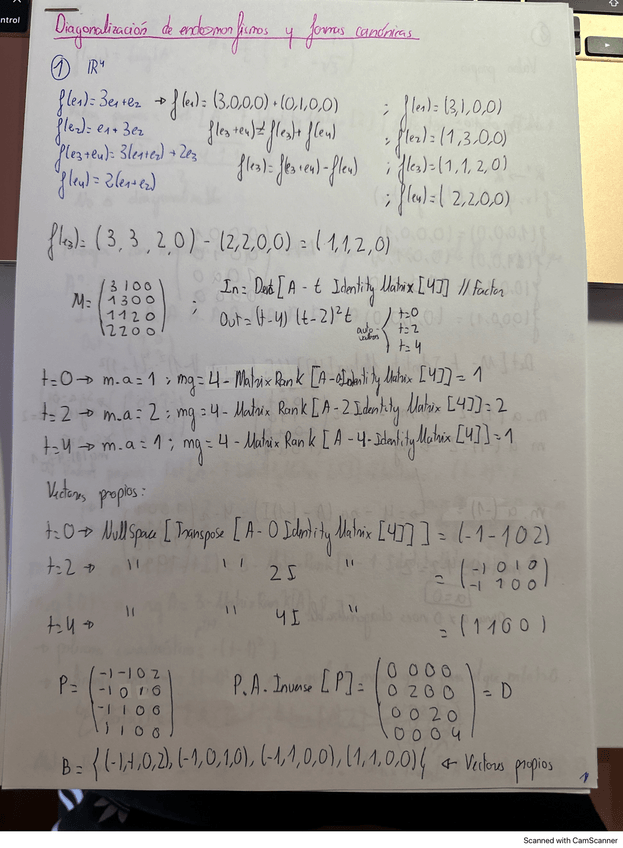 Diagonalización de endomorfismos y formas canónicas
① ℝ⁴
f(e1)=3e1+e2 → f(e1)=(3,0,0,0)+(0,1,0,0) ; f(e1)=(3,1,0,0)
f(e2)=e1+3e2 f(e3+e4)≠f(e3)+f(e4) ; f(e2)=(1,3,0,0)
f(e3+e4)=3(e1+e2)+2e3 f(e3)=f(e3+e4)-f(e4) ; f(e3)=(1,1,2,0)
f(e4)=2(e1+e2) ; f(e4)=(2,2,0,0)
f(e3)=(3,3,2,0)-(2,2,0,0)=(1,1,2,0)
M= (3 1 0 0
1 3 0 0
1 1 2 0
2 2 0 0) ;
In= Det[A - t IdentityMatrix[4]] // Factor
Out=(t-4)(t-2)²t
auto-valores
t=0
t=2
t=4
t=0→ m.a=1 ; mg=4-MatrixRank[A-0IdentityMatrix[4]]=1
t=2→ m.a=2 ; mg=4-MatrixRank[A-2IdentityMatrix[4]]=2
t=4→ m.a=1 ; mg=4-MatrixRank[A-4-IdentityMatrix[4]]=1
Vectores propios:
t=0→ NullSpace[Transpose[A-0IdentityMatrix[4]]] = (-1 -1 0 2)
t=2→ " " 2I " = (-1 0 1 0
-1 1 0 0)
t=4→ " " 4I " = (1 1 0 0)
P= (-1 -1 0 2
-1 0 1 0
-1 1 0 0
1 1 0 0)
P.A.Inverse[P]= (0 0 0 0
0 2 0 0
0 0 2 0
0 0 0 4) = D
B= {(-1,-1,0,2),(-1,0,1,0),(-1,1,0,0),(1,1,0,0)} ← Vectores propios
1
Scanned with CamScanner
control